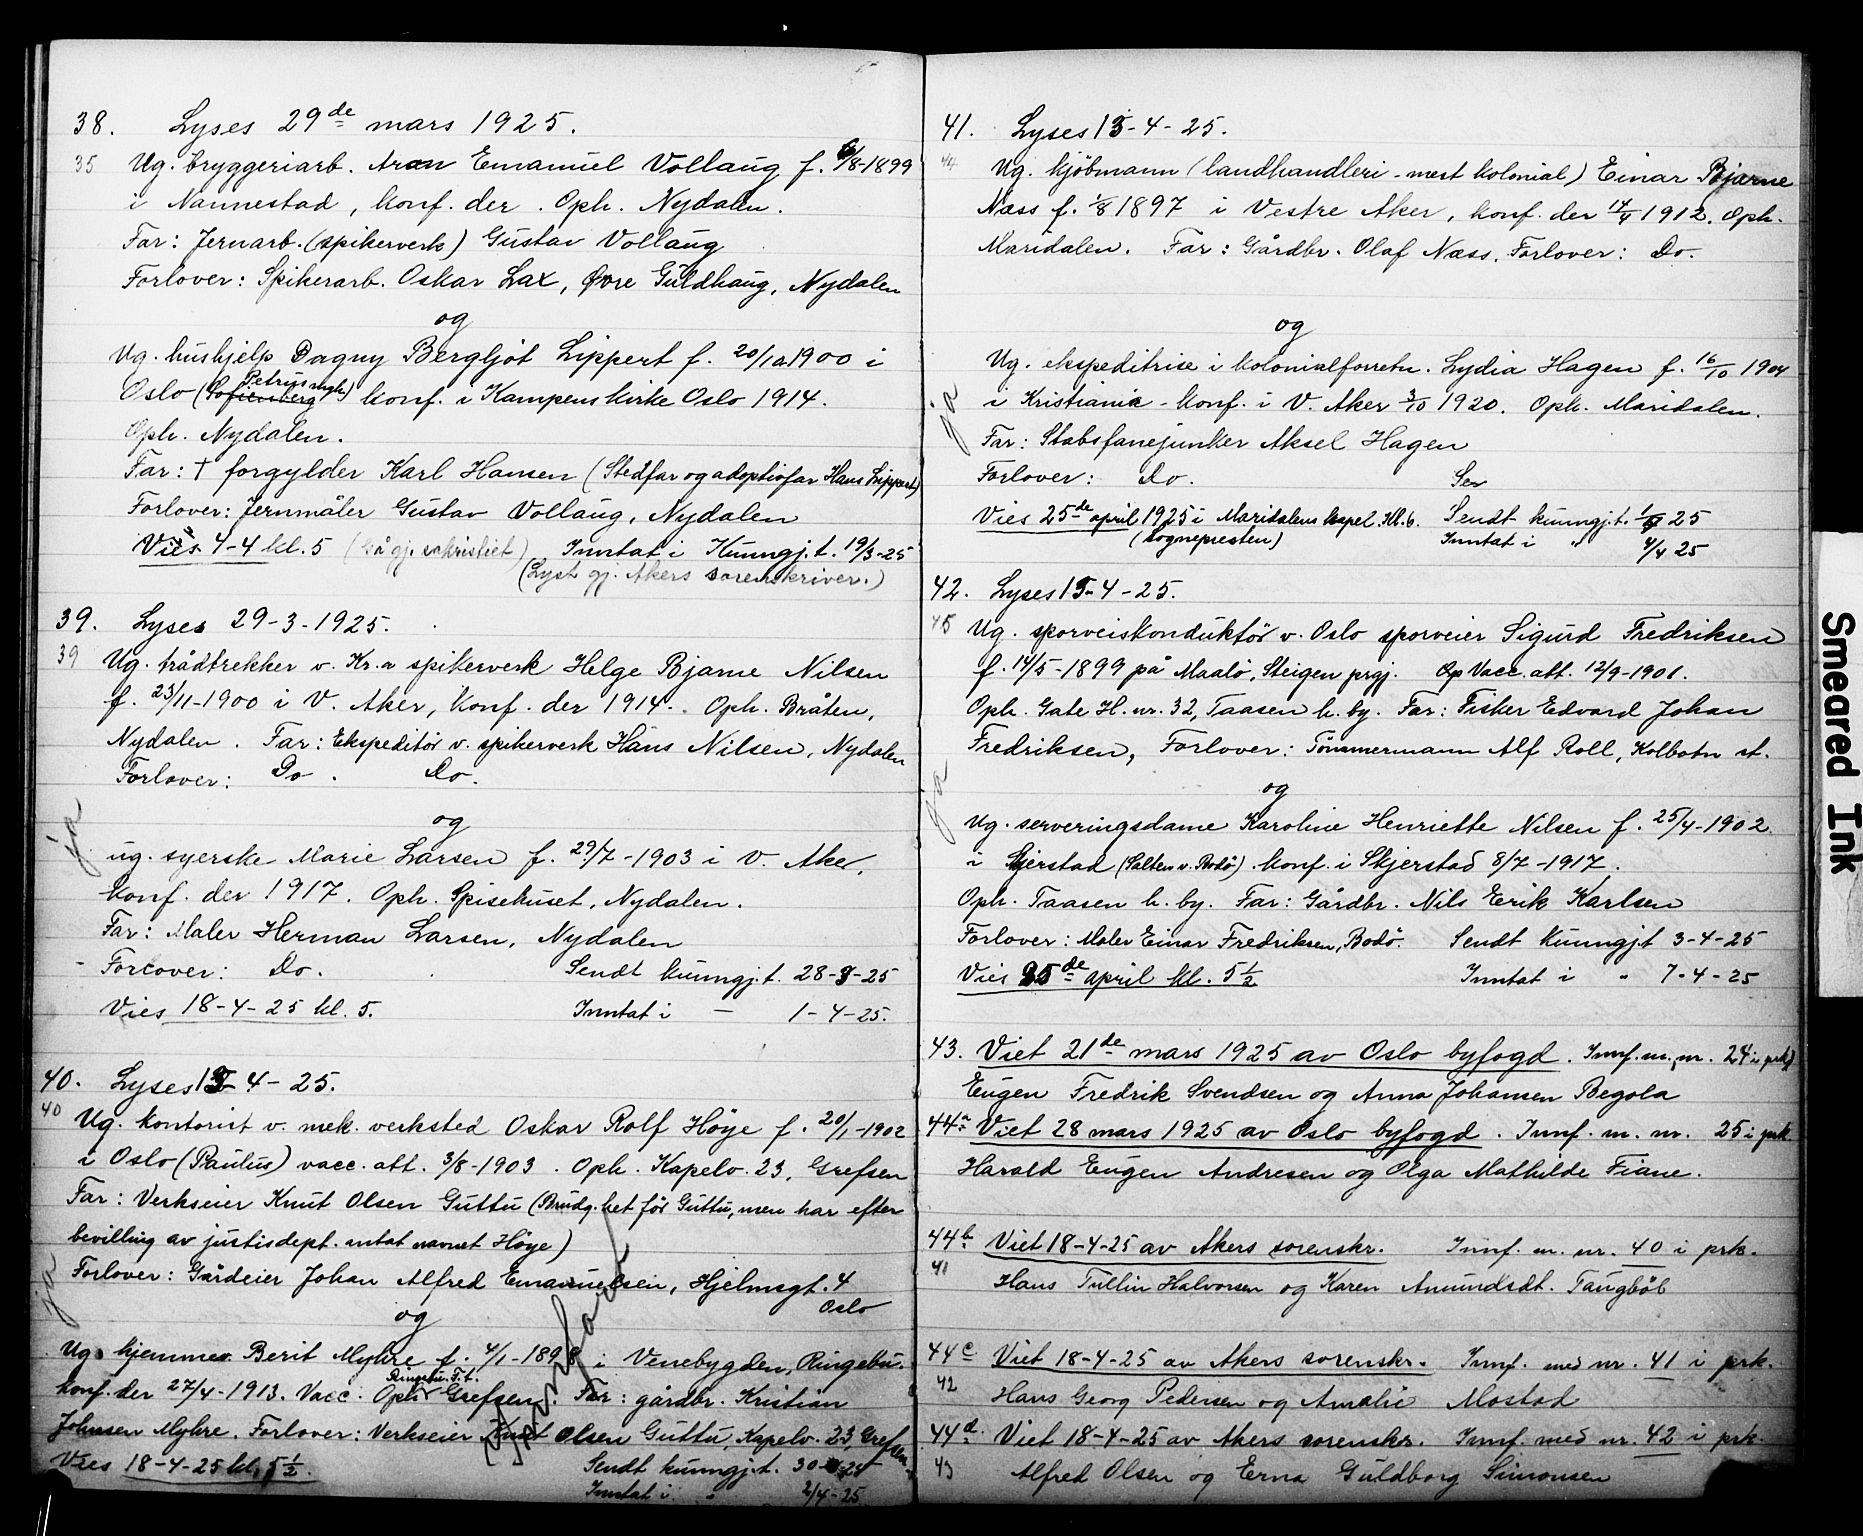 38. Lyses 29de mars 1925.
35 Ug. bryggeriarb. Aron Emanuel Vollaug f. 6/8-1899
i Nannestad, konf. der. Oph. Nydalen.
Far: Jernarb. (spikerverk) Gustav Vollaug
Forlover: Spikerarb. Oskar Lax, Øvre Guldhaug, Nydalen
og
Ug. hushjelp Dagny Bergljot Lippert f. 20/10 1900 i
Petrus mgh.
Oslo (Sofienberg) konf. i Kampens kirke Oslo 1914.
Oph. Nydalen.
Far: † forgylder Karl Hansen (Stedfar og adoptivfar Hans Lippert)
Forlover: Jernmåler Gustav Vollaug, Nydalen
Vies 4-4 kl. 5 (sakristiet) Inntat i Kunngj.t. 19/3-25
(Lyst gj. Akers sorenskriver.)
39. Lyses 29-3-1925.
39 Ug. trådtrekker v. Kr.a spikerverk Helge Bjarne Nilsen
f. 23/11-1900 i V. Aker, konf. der 1914. Oph. Bråten,
Nydalen. Far: Ekspeditör v. spikerverk Hans Nilsen, Nydalen
Forlover: Do. Do.
ja
og
ug. syerske Marie Larsen f. 29/7-1903 i V. Aker,
konf. der 1917. Oph. Spisehuset, Nydalen.
Far: Maler Herman Larsen, Nydalen
Forlover: Do. Sendt kunngj.t. 28-3-25
Vies 18-4-25 kl. 5. Inntat i — 1-4-25.
40. Lyses 13-4-25.
40 Ug. kontorist v. mek. verksted Oskar Rolf Höye f. 20/1-1902
i Oslo (Paulus) vacc. att. 3/8-1903. Oph. Kapelv. 23, Grefsen
Far: Verkseier Knut Olsen Guttu (Brudg. het för Guttu, men har efter
bevilling av justisdept. antat navnet Höye)
Forlover: Gårdeier Johan Alfred Emanuelsen, Hjelmsgt. 4
Oslo
ja
og
Ug. hjemmev. Berit Myhre f. 4/1-1898 i Venebygden, Ringebu.
Ringebu. F.t.
konf. der 27/4-1913. Vacc. Oph. Grefsen. Far: gårdbr. Kristian
Johnsen Myhre. Forlover: Verkseier Knut Olsen Guttu, Kapelv. 23, Grefsen
Vies 18-4-25 kl. 5 1/2. Sendt kunngj.t. 30-3-25
Inntat i " 2/4-25
41. Lyses 13-4-25.
44 Ug. kjöbmann (landhandleri - mest kolonial) Einar Bjarne
Næss f. 1/8 1897 i Vestre Aker, konf. der 14/4 1912. Oph.
Maridalen. Far: Gårdbr. Olaf Næss. Forlover: Do.
og
Ug. ekspeditrise i kolonialforretn. Lydia Hagen f. 16/10 1904
i Kristiania - konf. i V. Aker 3/10 1920. Oph. Maridalen.
ja
Far: Stabsfanejunker Aksel Hagen
Forlover: Do. Sen
Vies 25de april 1925 i Maridalens kapel kl. 6. Sendt kunngj.t. 1/4 25
(sognepresten) Inntat i " 4/4 25
42. Lyses 13-4-25.
45 Ug. sporveiskonduktör v. Oslo sporveier Sigurd Fredriksen
f. 14/5-1899 på Maalö, Steigen prgj. Op Vacc. att. 12/9-1901.
Oph. Gate H. nr. 32, Taasen h. by. Far: Fisker Edvard Johan
Fredriksen, Forlover: Tömmermann Alf Roll, Kolbotn st.
ja
og
Ug. serveringsdame Karoline Henriette Nilsen f. 25/4-1902
i Skjerstad (Salten v. Bodö). konf. i Skjerstad 8/7-1917.
Oph. Taasen h. by. Far: Gårdbr. Nils Erik Karlsen
Forlover: Maler Einar Fredriksen, Bodö. Sendt Kunngj.t 3-4-25
Vies 25de april kl. 5 1/2 Inntat i " 7-4-25
43. Viet 21de mars 1925 av Oslo byfogd. Innf. m. nr. 24 i prk)
Eugen Fredrik Svendsen og Anna Johansen Begola
44a Viet 28 mars 1925 av Oslo byfogd. Innf. m. nr. 25 i prk.
Harald Eugen Andresen og Olga Mathilde Fiane.
44b Viet 18-4-25 av Akers sorenskr. Innf. m. nr. 40 i prk.
41 Hans Tullin Halvorsen og Karen Amundsdt. Taugböl
44c Viet 18-4-25 av Akers sorenskr. Innf. med nr. 41 i prk.
42 Hans Georg Pedersen og Amalie Mostad
44d Viet 18-4-25 av Akers sorenskr. Innf. med nr. 42 i prk.
43 Alfred Olsen og Erna Guldborg Simonsen
Smeared Ink